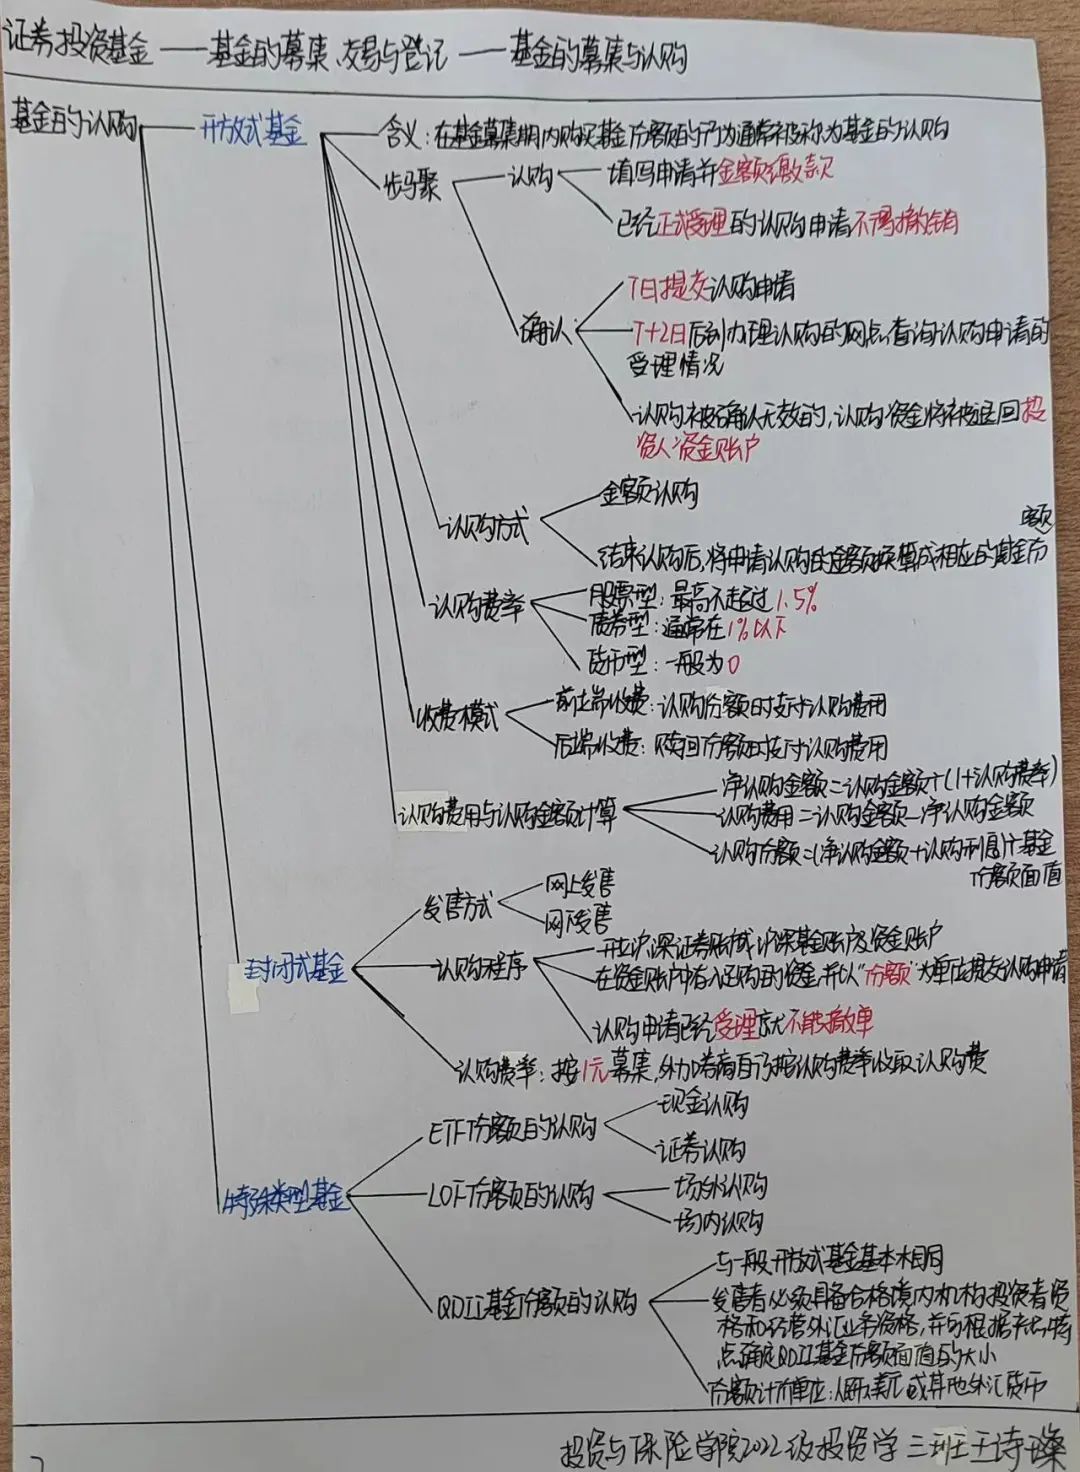 证券投资基金——基金的募集、交易与登记——基金的募集与认购
基金的认购
开放式基金
含义：在基金募集期内购买基金份额的行为通常被称为基金的认购
步骤
认购
填写申请并金额缴款
已经正式受理的认购申请不得撤销
确认
T日提交认购申请
T+2日后到办理认购的网点查询认购申请的
受理情况
认购被确认无效的，认购资金将被退回投
资人资金账户
认购方式
金额认购
结束认购后，将申请认购的金额换算成相应的基金份
额
认购费率
股票型：最高不超过1.5%
债券型：通常在1%以下
货币型：一般为0
收费模式
前端收费：认购份额时支付认购费用
后端收费：赎回份额时支付认购费用
认购费用与认购金额计算
净认购金额=认购金额÷(1+认购费率)
认购费用=认购金额-净认购金额
认购份额=(净认购金额+认购利息)÷基金
份额面值
封闭式基金
发售方式
网上发售
网下发售
认购程序
开立沪、深证券账或沪深基金账户及资金账户
在资金账户中存入认购的资金,并以“份额”为单位提交认购申请
认购申请已经受理就不能撤单
认购费率：按1元募集，外加券商自行按认购费率收取认购费
特殊类型基金
ETF份额的认购
现金认购
证券认购
LOF份额的认购
场外认购
场内认购
QDII基金份额的认购
与一般开放式基金基本相同
发售者必须具备合格境内机构投资者资
格和经营外汇业务资格，并可根据产品特
点确定QDII基金份额面值的大小
份额计价单位：人民币、美元或其他外汇货币
投资与保险学院2022级投资学三班王诗璨